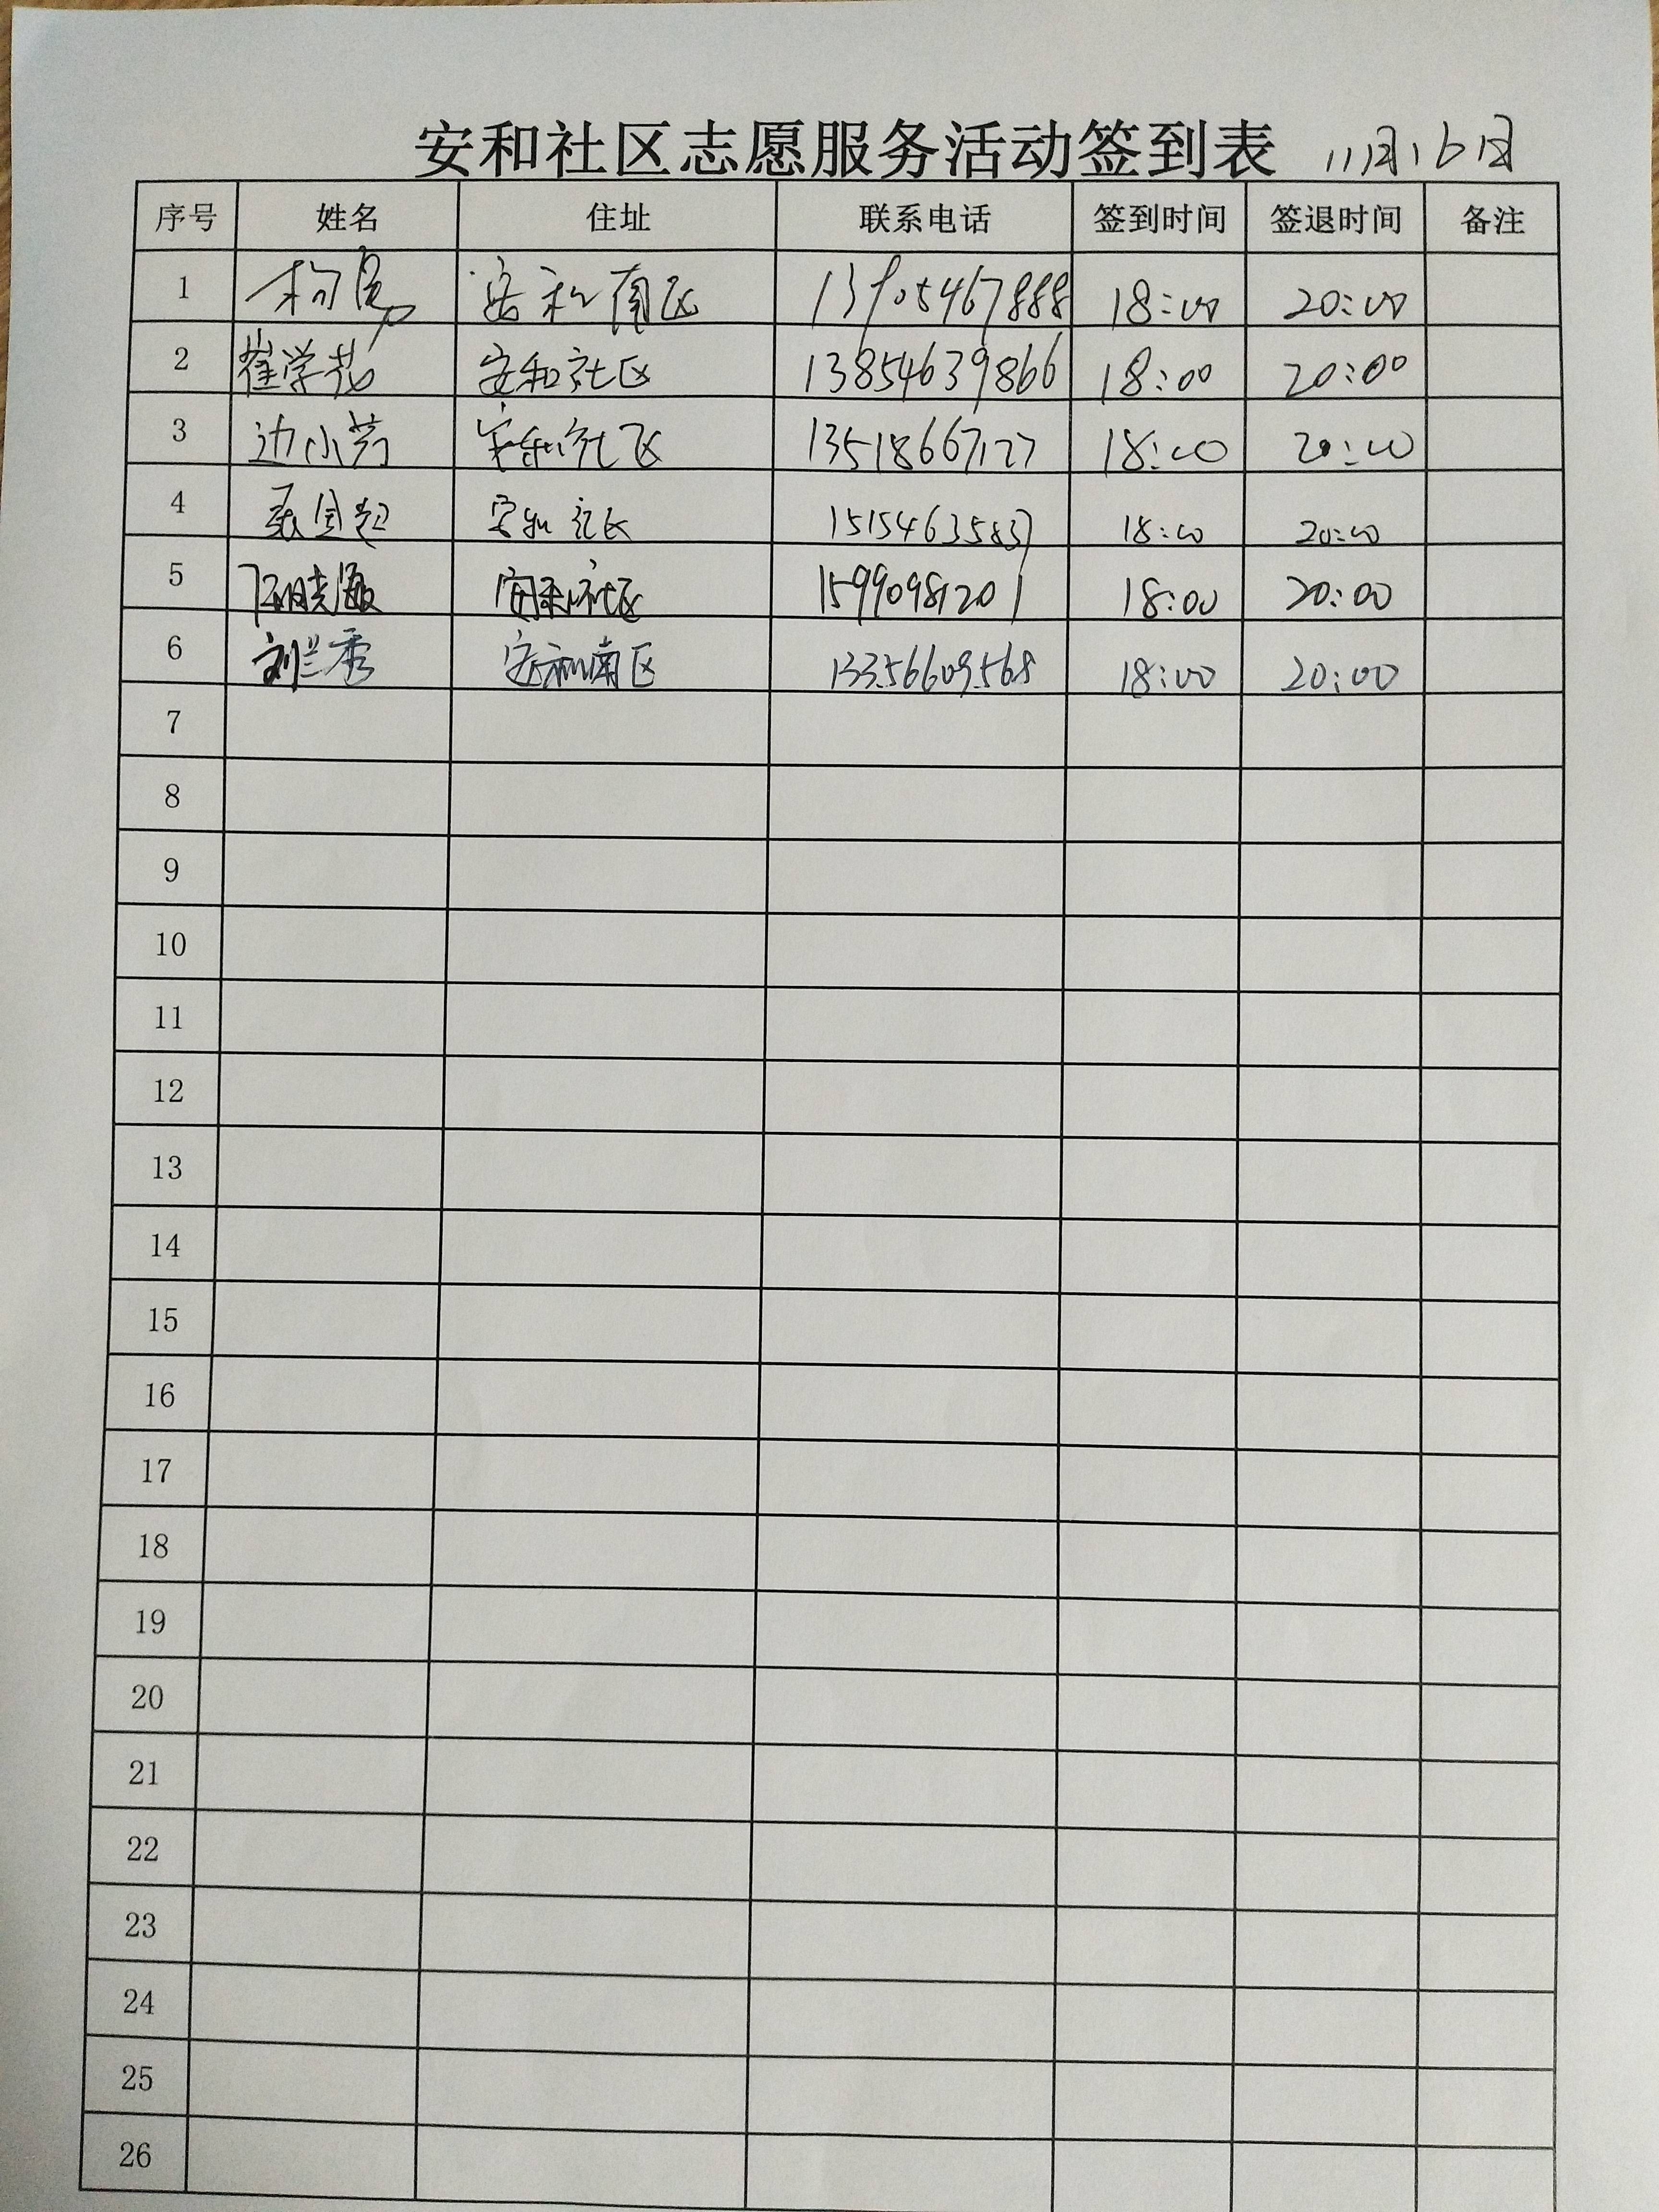 安和社区志愿服务活动签到表 11月16日
序号 姓名 住址 联系电话 签到时间 签退时间 备注
1 安和南区 13905467888 18:00 20:00
2 崔学花 安和社区 13854639866 18:00 20:00
3 边小芳 安和社区 13518667127 18:00 20:00
4 安和社区 18:00 20:00
5 安和社区 15990981201 18:00 20:00
6 刘兰秀 安和南区 13356609568 18:00 20:00
7
8
9
10
11
12
13
14
15
16
17
18
19
20
21
22
23
24
25
26